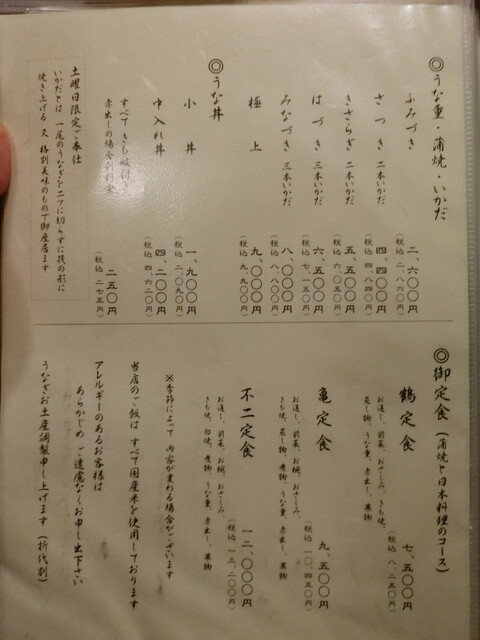 ◎うな重・蒲焼・いかだ
ふみづき 二、六〇〇円
(税込 二、八六〇円)
さつき 二本いかだ 四、四〇〇円
(税込 四、八四〇円)
きさらぎ 二本いかだ 五、五〇〇円
(税込 六、〇五〇円)
はづき 三本いかだ 六、五〇〇円
(税込 七、一五〇円)
みなづき 三本いかだ 八、〇〇〇円
(税込 八、八〇〇円)
極上 九、〇〇〇円
(税込 九、九〇〇円)
◎うな丼
小丼 一、九〇〇円
(税込 二、〇九〇円)
中入れ丼 四、二〇〇円
(税込 四、六二〇円)
すべて きも吸付き
赤出しの場合別料金 二五〇円
(税込 二七五円)
土曜日限定ご奉仕
いかだとは 一尾のうなぎを二ツに切らずに筏の形に
焼き上げる 久 格別美味のもので御座居ます
◎御定食 (蒲焼と日本料理のコース)
鶴定食 七、五〇〇円
(税込 八、二五〇円)
お通し、前菜、おさしみ、きも焼、
蒸し物、うな重、赤出し、果物
亀定食 九、五〇〇円
(税込 一〇、四五〇円)
お通し、前菜、お椀、おさしみ、
きも焼、蒸し物、煮物、うな重、赤出し、果物
不二定食 一二、〇〇〇円
(税込 一三、二〇〇円)
お通し、前菜、お椀、おさしみ、
きも焼、白焼、煮物、うな重、赤出し、果物
※季節によって 内容が変わる場合がございます
当店のご飯は すべて国産米を使用しております
アレルギーのあるお客様は
あらかじめ ご遠慮なくお申し出下さい
うなぎお土産調製申し上げます (折代別)